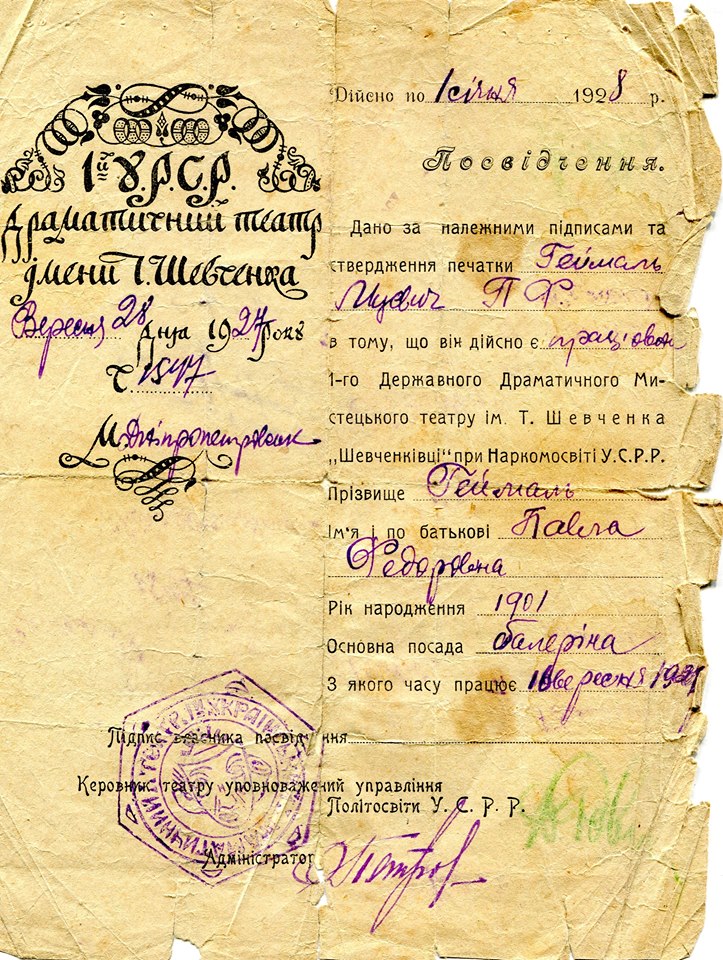 1ий У.Р.С.Р.
Драматичний театр
імени Т. Шевченка
Вересня 28 дня 1927 року
Ч. 1577
М. Дніпропетровськ
Дійсно по 1 січня 1928 р.
Посвідчення.
Дано за належними підписами та
ствердження печатки Геймаль
П Ф
в тому, що він дійсно є
1-го Державного Драматичного Ми-
стецького театру ім. Т. Шевченка
„Шевченківці“ при Наркомосвіті У.С.Р.Р.
Прізвище Геймаль
Ім'я і по батькові Павла
Федоровна
Рік народження 1901
Основна посада балеріна
З якого часу працює вересня 192
Підпис власника посвідчення
Керовник театру уповноважений управління
Політосвіти У. С. Р. Р.
Адміністратор Петров